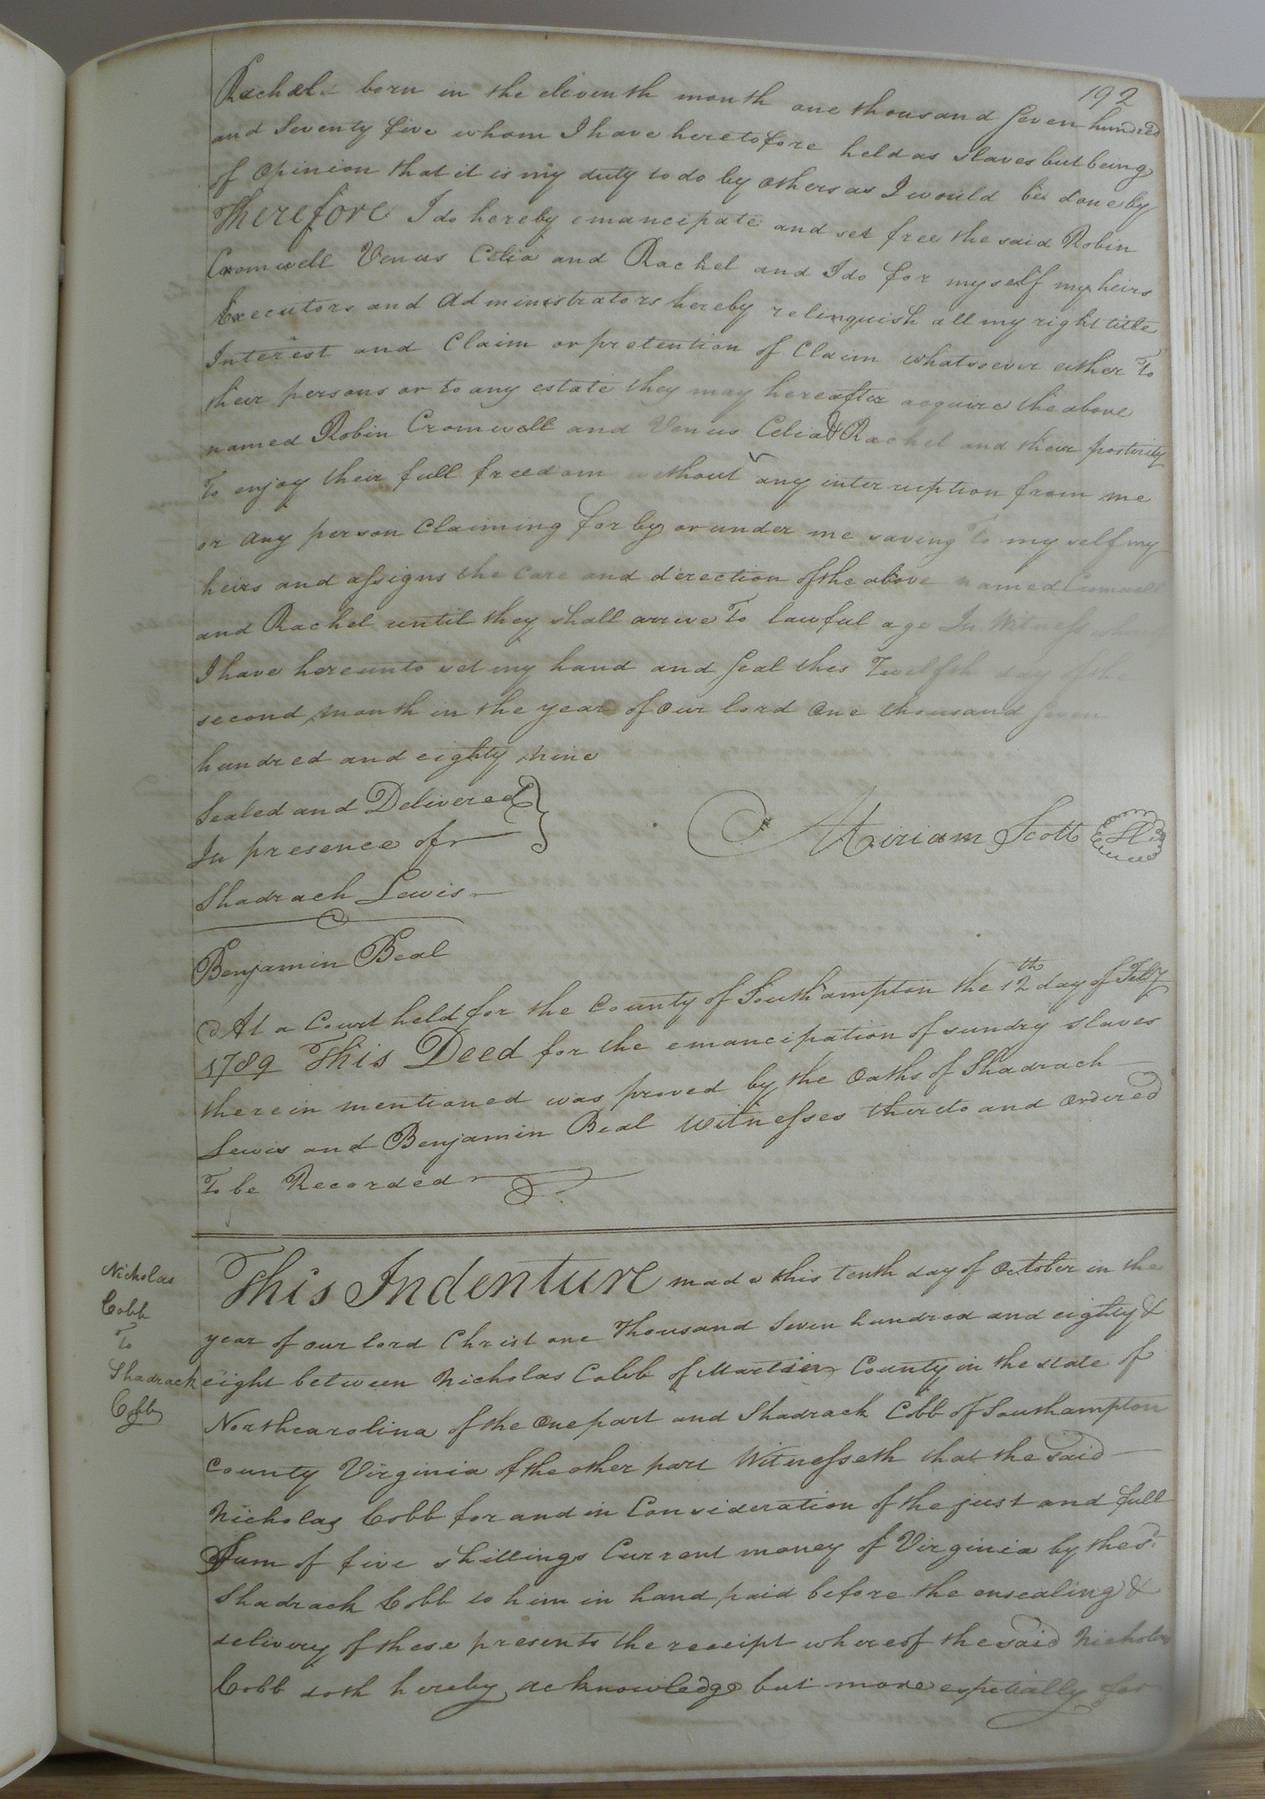 192
Rachel born in the eleventh month one thousand seven hundred
and Seventy five whom I have heretofore held as slaves but being
of Opinion that it is my duty to do by others as I would be done by
Therefore I do hereby emancipate and set free the said Robin
Cromwell Venus Celia and Rachel and I do for myself my heirs
Executors and Administrators hereby relinquish all my right title
Interest and Claim or pretention of Claim whatsoever either To
their persons or to any estate they may hereafter acquire the above
named Robin Cromwell and Venus Celia & Rachel and their posterity
To enjoy their full freedom without any interruption from me
or any person Claiming for by or under me saving To my self my
heirs and assigns the Care and direction of the above named Cromwell
and Rachel until they shall arrive To lawful age In Witness
I have hereunto set my hand and seal this Twelfth day of the
second month in the year of our lord One thousand seven
hundred and eighty nine
Sealed and Delivered
In presence of
Miriam Scott
Shadrach Lewis
Benjamin Beal
At a Court held for the County of Southampton the 12th day of Feby
1789 This Deed for the emancipation of sundry slaves
therein mentioned was proved by the Oaths of Shadrach
Lewis and Benjamin Beal Witnesses thereto and Ordered
To be Recorded
Nicholas
Cobb
To
Shadrack
Cobb
This Indenture made this tenth day of October in the
year of our lord Christ one Thousand Seven hundred and eighty &
eight between Nicholas Cobb of Martin County in the state of
Northcarolina of the One part and Shadrack Cobb of Southampton
County Virginia of the other part Witnesseth that the said
Nicholas Cobb for and in Consideration of the just and full
Sum of five shillings Current money of Virginia by the sd.
Shadrack Cobb to him in hand paid before the ensealing &
delivery of these presents the receipt whereof the said Nicholas
Cobb doth hereby acknowledge but more espetially for